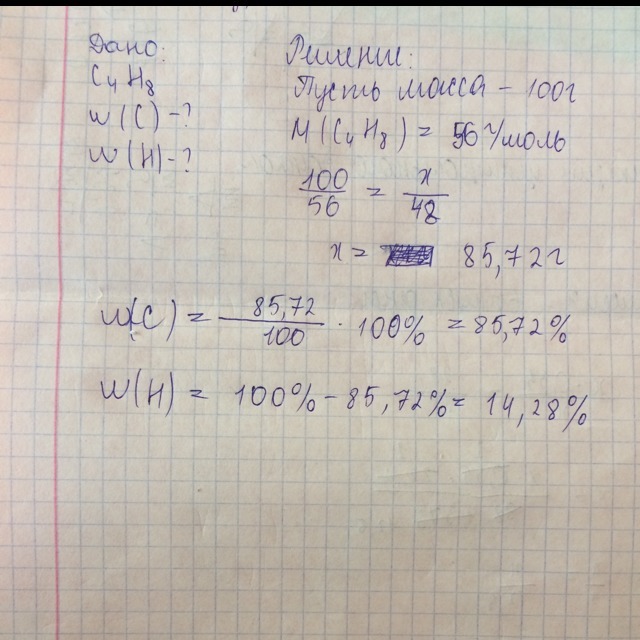 Дано:
C₄H₈
w(C)-?
w(H)-?
Решение:
Пусть масса - 100г
M(C₄H₈) = 56 г/моль
100/56 = x/48
x = 85,72г
w(C) = 85,72/100 · 100% = 85,72%
w(H) = 100% - 85,72% = 14,28%